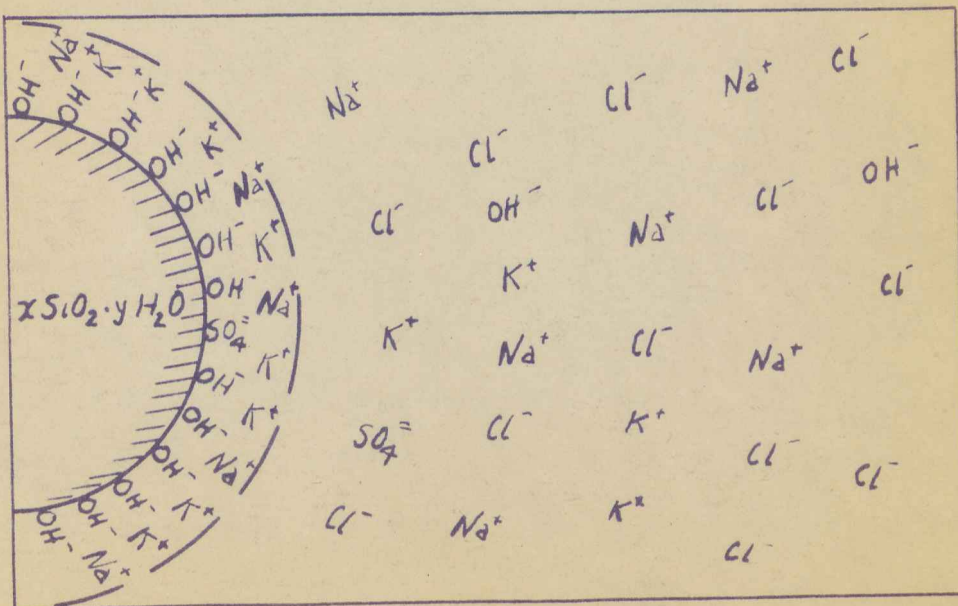 OH⁻ Na⁺
OH⁻ K⁺
OH⁻ K⁺
OH⁻ K⁺
OH⁻ Na⁺
OH⁻ K⁺
OH⁻ Na⁺
xSiO₂·yH₂O
SO₄⁼
OH⁻ K⁺
OH⁻ K⁺
OH⁻ Na⁺
OH⁻ K⁺
OH⁻ K⁺
OH⁻ Na⁺
Na⁺
Cl⁻
Na⁺
Cl⁻
Cl⁻
OH⁻
Cl⁻
OH⁻
Na⁺
Cl⁻
K⁺
Cl⁻
K⁺
Na⁺
Cl⁻
Na⁺
SO₄⁼
Cl⁻
K⁺
Cl⁻
Cl⁻
Cl⁻
Na⁺
K⁺
Cl⁻